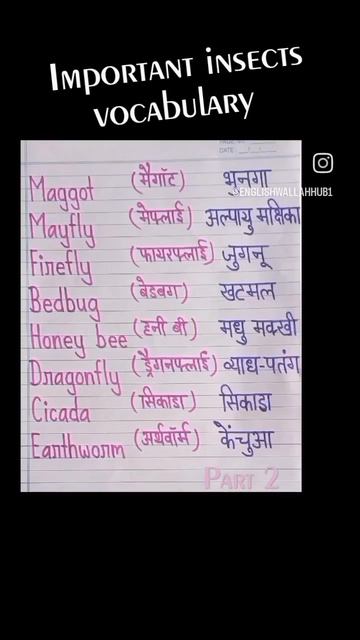 Important insects
vocabulary
DATE:
@ENGLISHWALLAHHUB1
Maggot (मैगॉट) भुनगा
Mayfly (मेफ्लाई) अल्पायु मक्षिका
Firefly (फायरफ्लाई) जुगनू
Bedbug (बेडबग) खटमल
Honey bee (हनी बी) मधु मक्खी
Dragonfly (ड्रैगनफ्लाई) व्याध-पतंग
Cicada (सिकाडा) सिकाडा
Earthworm (अर्थवॉर्म) केंचुआ
Part 2